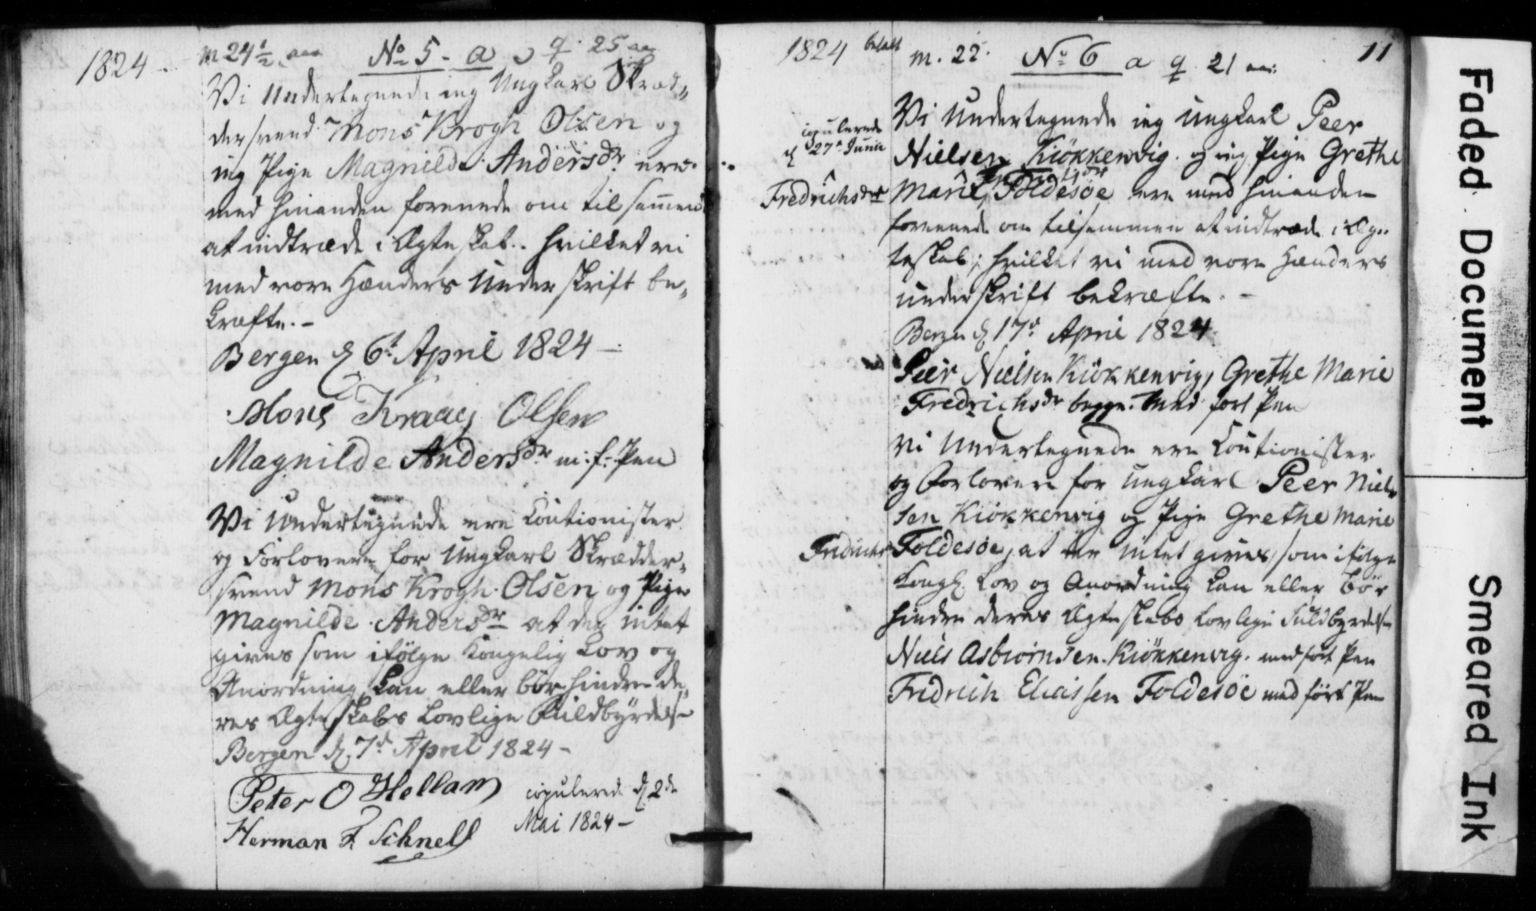 1824
m 24½ aar No 5 - a q. 25 aar
Vi Undertegnede ieg Ungkarl Skræd-
dersvend Mons Krogh Olsen og
ieg Pige Magnilde Andersdr. ere
med hinanden forenede om til sammen
at indtræde i Ægteskab.. hvilket vi
med vore Hænders Underskrift be-
kræfte. -
Bergen d. 6t April 1824 -
Mons Kraag Olsen
Magnilde Andersdr. m: f: Pen
Vi Undertegnede ere Coutionister
og Forlovere for Ungkarl Skrædder-
svend Mons Krogh Olsen og Pige
Magnilde Andersdr at der intet
gives som ifølge Kongelig Lov og
Anordning kan eller bør hindre de-
res Ægteskabs Lovlige Fuldbyrdelse
Bergen d. 7d April 1824 -
Peter O Hellam
Herman F Schnell
copulerede d. 2de
Mai 1824 -
1824 betalt m. 22. No 6 a q 21 aar: 11
copulerede
d 27d Junii
Vi Undertegnede ieg Ungkarl Peer
Nielsen Kiökkenvig og ieg Pige Grethe
Fredrichsdr
Marie Foldesøe ere med hinanden
forenede om tilsammen at indtræde i Æg-
teskab; hvilket vi med vore Hænders
underskrift bekræfte. -
Bergen d 17d April 1824.
Peer Nielsen Kiökkenvig, Grethe Marie
Fredrichsdr begge med ført Pen
Vi Undertegnede ere Coutionister
og Forlovere for Ungkarl Peer Niel-
sen Kiökkenvig og Pige Grethe Marie
Fridrichs
Foldesøe, at der intet gives, som ifølge
Kongl. Lov og Anordning kan eller bør
hindre deres Ægteskabs Lovlige Fuldbyrdelse
Niels Asbiörnsen Kiökkenvig. med ført Pen
Fridrich Eliassen Foldesöe med ført Pen
Faded Document
Smeared Ink